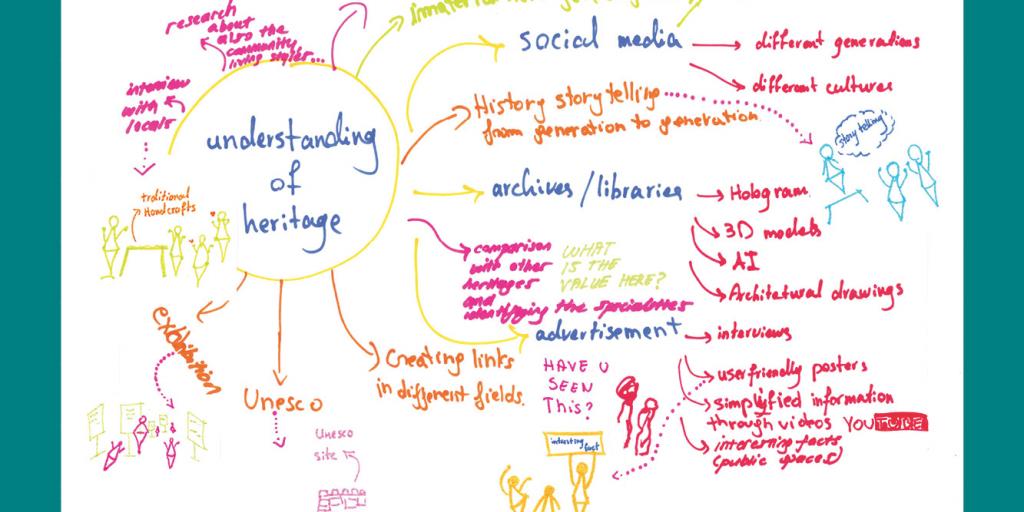 research
about
also the
community
living styles...
interview
with
locals
traditional
Handcrafts
understanding
of
heritage
social media
different generations
different cultures
History storytelling
from generation to generation
story telling
archives / libraries
Hologram
3D models
AI
Architatural drawings
comparison
with other
heritages
and
identifying the specialities
WHAT
IS THE
VALUE HERE?
advertisement
interviews
userfriendly posters
simplyfied information
through videos YOUTUBE
interesting facts
(public spaces)
HAVE U
SEEN
This?
interesting
fact
Creating links
in different fields.
exhibition
Unesco
Unesco
site